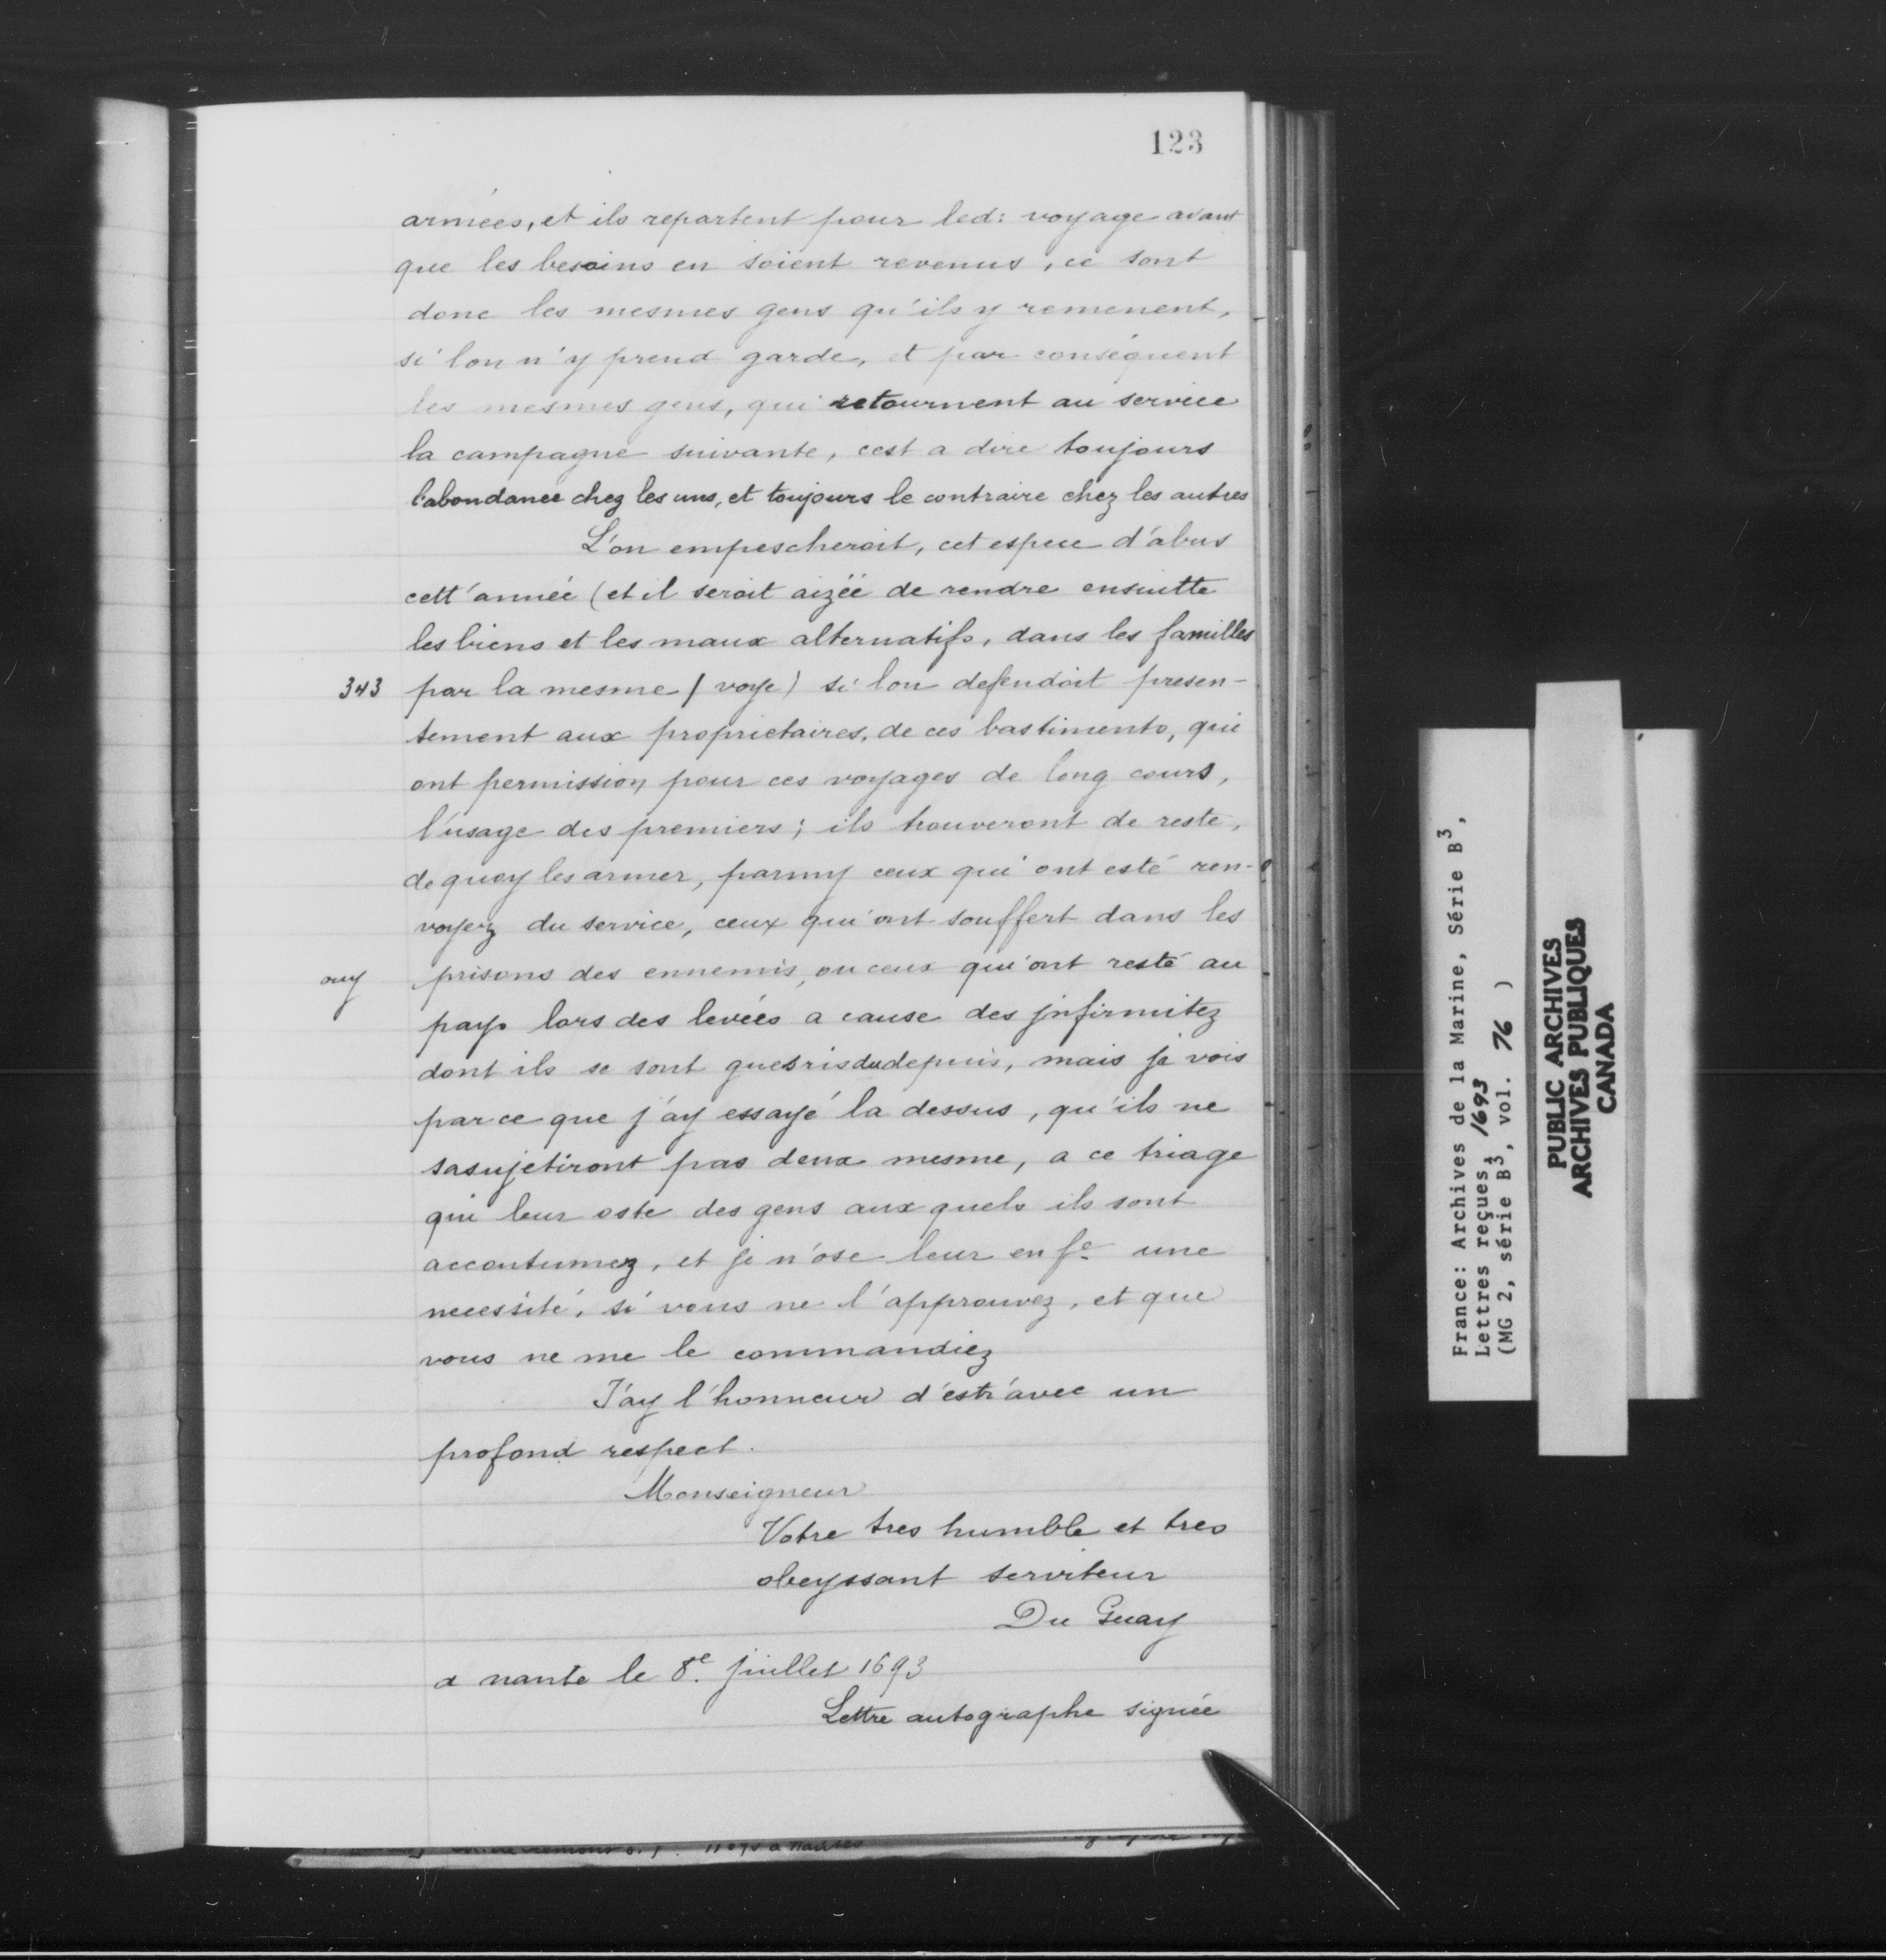 123
armées, et ils repartent pour led: voyage avant
que les besoins en soient revenus, ce sont
donc les mesmes gens qu'ils y remenent,
si lon n'y prend garde, et par conséquent
les mesmes gens, qui retournent au service
la campagne suivante, cest a dire toujours
l'abondance chez les uns, et toujours le contraire chez les autres
L'on empescheroit, cet espece d'abus
cett'année (et il seroit aizéé de rendre ensuitte
les biens et les maux alternatifs, dans les familles
343 par la mesme (voye) si lon defendoit presen-
tement aux proprietaires, de ces bastiments, qui
ont permission pour ces voyages de long cours,
l'usage des premiers; ils trouveront de reste,
de quoy les armer, parmy ceux qui ont esté ren-
voyez du service, ceux qui ont souffert dans les
ouy prisons des ennemis, ou ceux qui ont resté au
pays lors des levées a cause des jnfirmitez
dont ils se sont guesris dudepuis, mais je vois
par ce que j'ay essayé la dessus, qu'ils ne
sasujetiront pas deux mesme, a ce triage
qui leur oste des gens aux quels ils sont
accoutumez, et je n'ose leur en fe une
necessité, si vous ne l'approuvez, et que
vous ne me le commandiez
J'ay l'honneur d'estr'avec un
profond respect.
Monseigneur
Votre tres humble et tres
obeyssant serviteur
Du Guay
a nante le 8e. juillet 1693
Lettre autographe signée
France: Archives de la Marine, Série B3,
Lettres reçues, 1693
(MG 2, série B3, vol. 76 )
PUBLIC ARCHIVES
ARCHIVES PUBLIQUES
CANADA